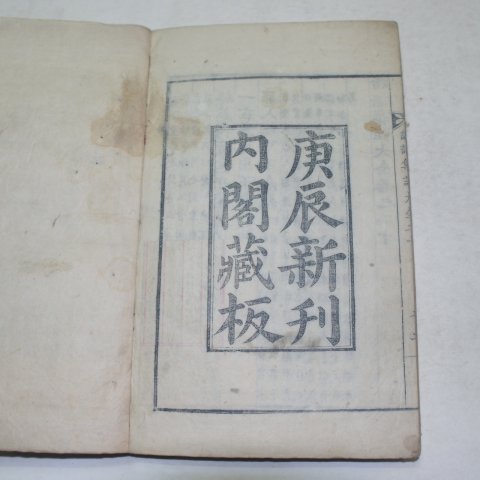 庚辰新刊
內閣藏板